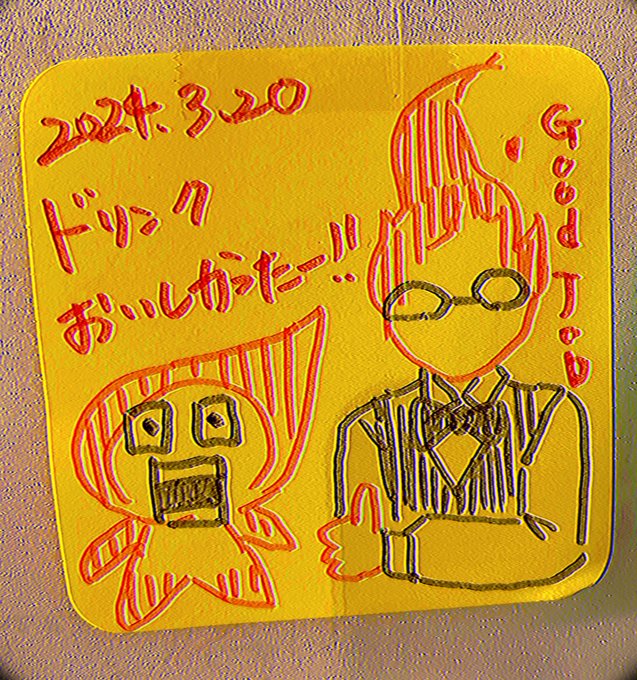 2024.3.20
ドリンク
おいしかったー!!
Good Job